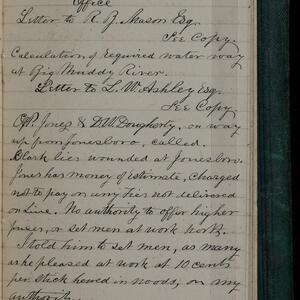 Office
Letter to R. B. Mason Esq.
See Copy.
Calculation of required water way
at Big Muddy River.
Letter to L. W. Ashley Esq.
See Copy
Jones & D. W. Dougherty, on way
up from Jonesboro, called.
Clark lies wounded at Jonesboro.
Jones has money of estimate, charged
not to pay on any ties not delivered
on Line. No authority to offer higher
prices, or set men at work North.
I told him to set men, as many
as he pleased at work at 10 cents
per stick hewed in woods, on any
authority